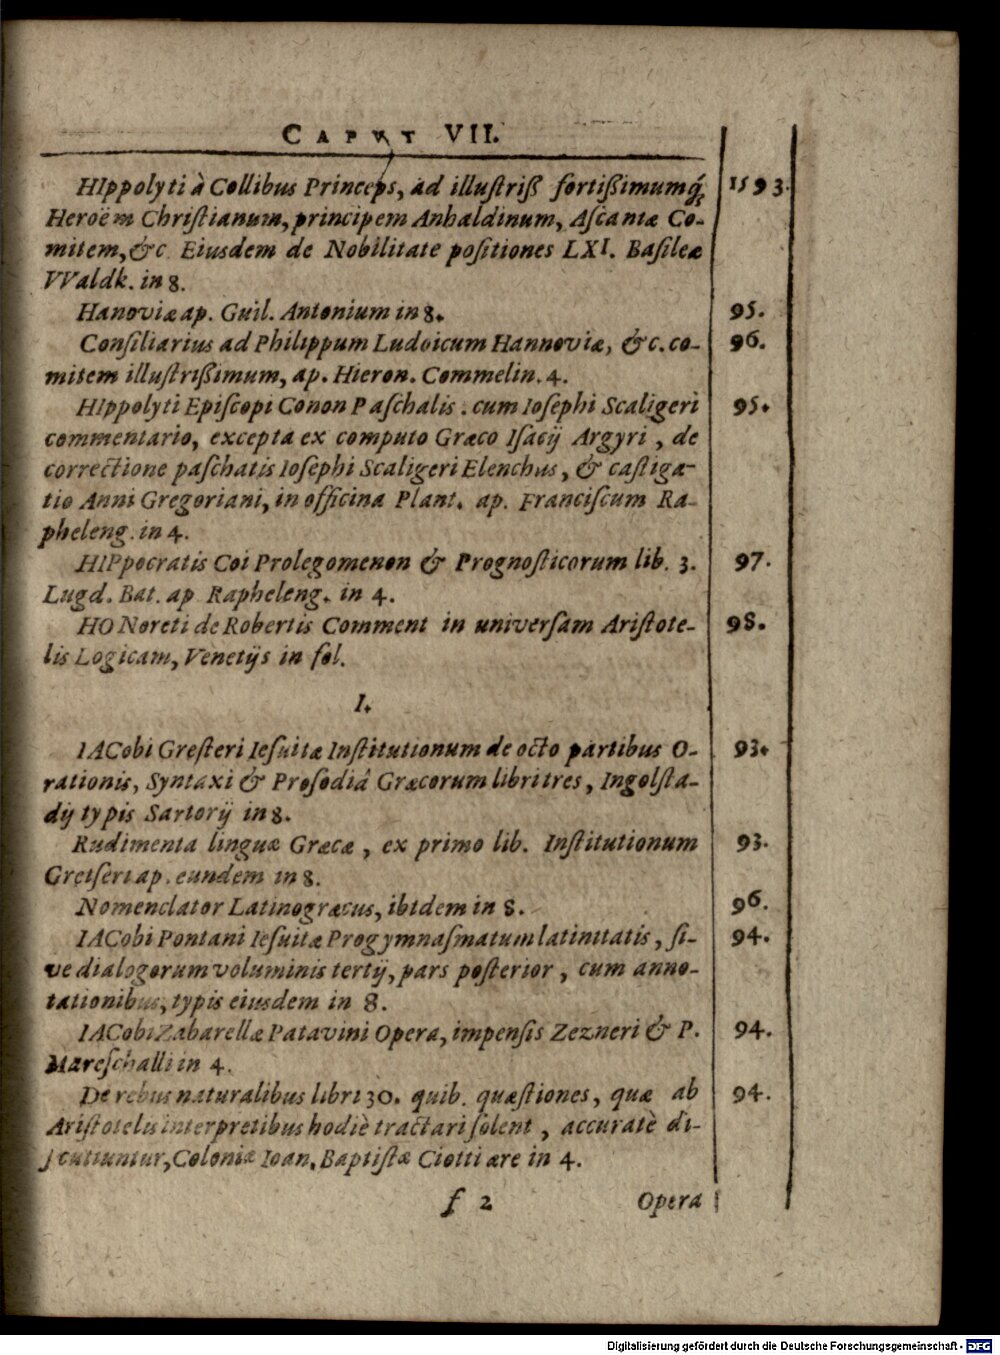 CAPVT VII.
HIppolyti à Collibus Princeps, ad illustriß fortißimumq́; 1593.
Heroëm Christianum, principem Anhaldinum, Ascaniæ Co-
mitem, &c. Eiusdem de Nobilitate positiones LXI. Basileæ
VValdk. in 8.
Hanoviæ ap. Guil. Antonium in 8. 95.
Consiliarius ad Philippum Ludoicum Hannoviæ, &c. co- 96.
mitem illustrißimum, ap. Hieron. Commelin. 4.
HIppolyti Episcopi Conon Paschalis. cum Iosephi Scaligeri 95.
commentario, excepta ex computo Græco Isacij Argyri, de
correctione paschatis Iosephi Scaligeri Elenchus, & castiga-
tio Anni Gregoriani, in officina Plant. ap. Franciscum Ra-
pheleng. in 4.
HIPpocratis Coi Prolegomenon & Prognosticorum lib. 3. 97.
Lugd. Bat. ap Rapheleng. in 4.
HONoreti de Robertis Comment in universam Aristote- 98.
lis Logicam, Venetijs in fol.
I.
IACobi Gresteri Iesuitæ Institutionum de octo partibus O- 93.
rationis, Syntaxi & Prosodiâ Græcorum libri tres, Ingolsta-
dij typis Sartorij in 8.
Rudimenta linguæ Græcæ, ex primo lib. Institutionum 93.
Gretseri ap. eundem in 8.
Nomenclator Latinogræcus, ibidem in 8. 96.
IACobi Pontani Iesuitæ Progymnasmatum latinitatis, si- 94.
ve dialogorum voluminis tertij, pars posterior, cum anno-
tationibus, typis eiusdem in 8.
IACobi Zabarellæ Patavini Opera, impensis Zezneri & P. 94.
Mareschalli in 4.
De rebus naturalibus libri 30. quib. quæstiones, quæ ab 94.
Aristotelis interpretibus hodiè tractari solent, accuratè di-
scutiuntur, Coloniæ Ioan. Baptistæ Ciotti ære in 4.
f 2 Opera
Digitalisierung gefördert durch die Deutsche Forschungsgemeinschaft - DFG